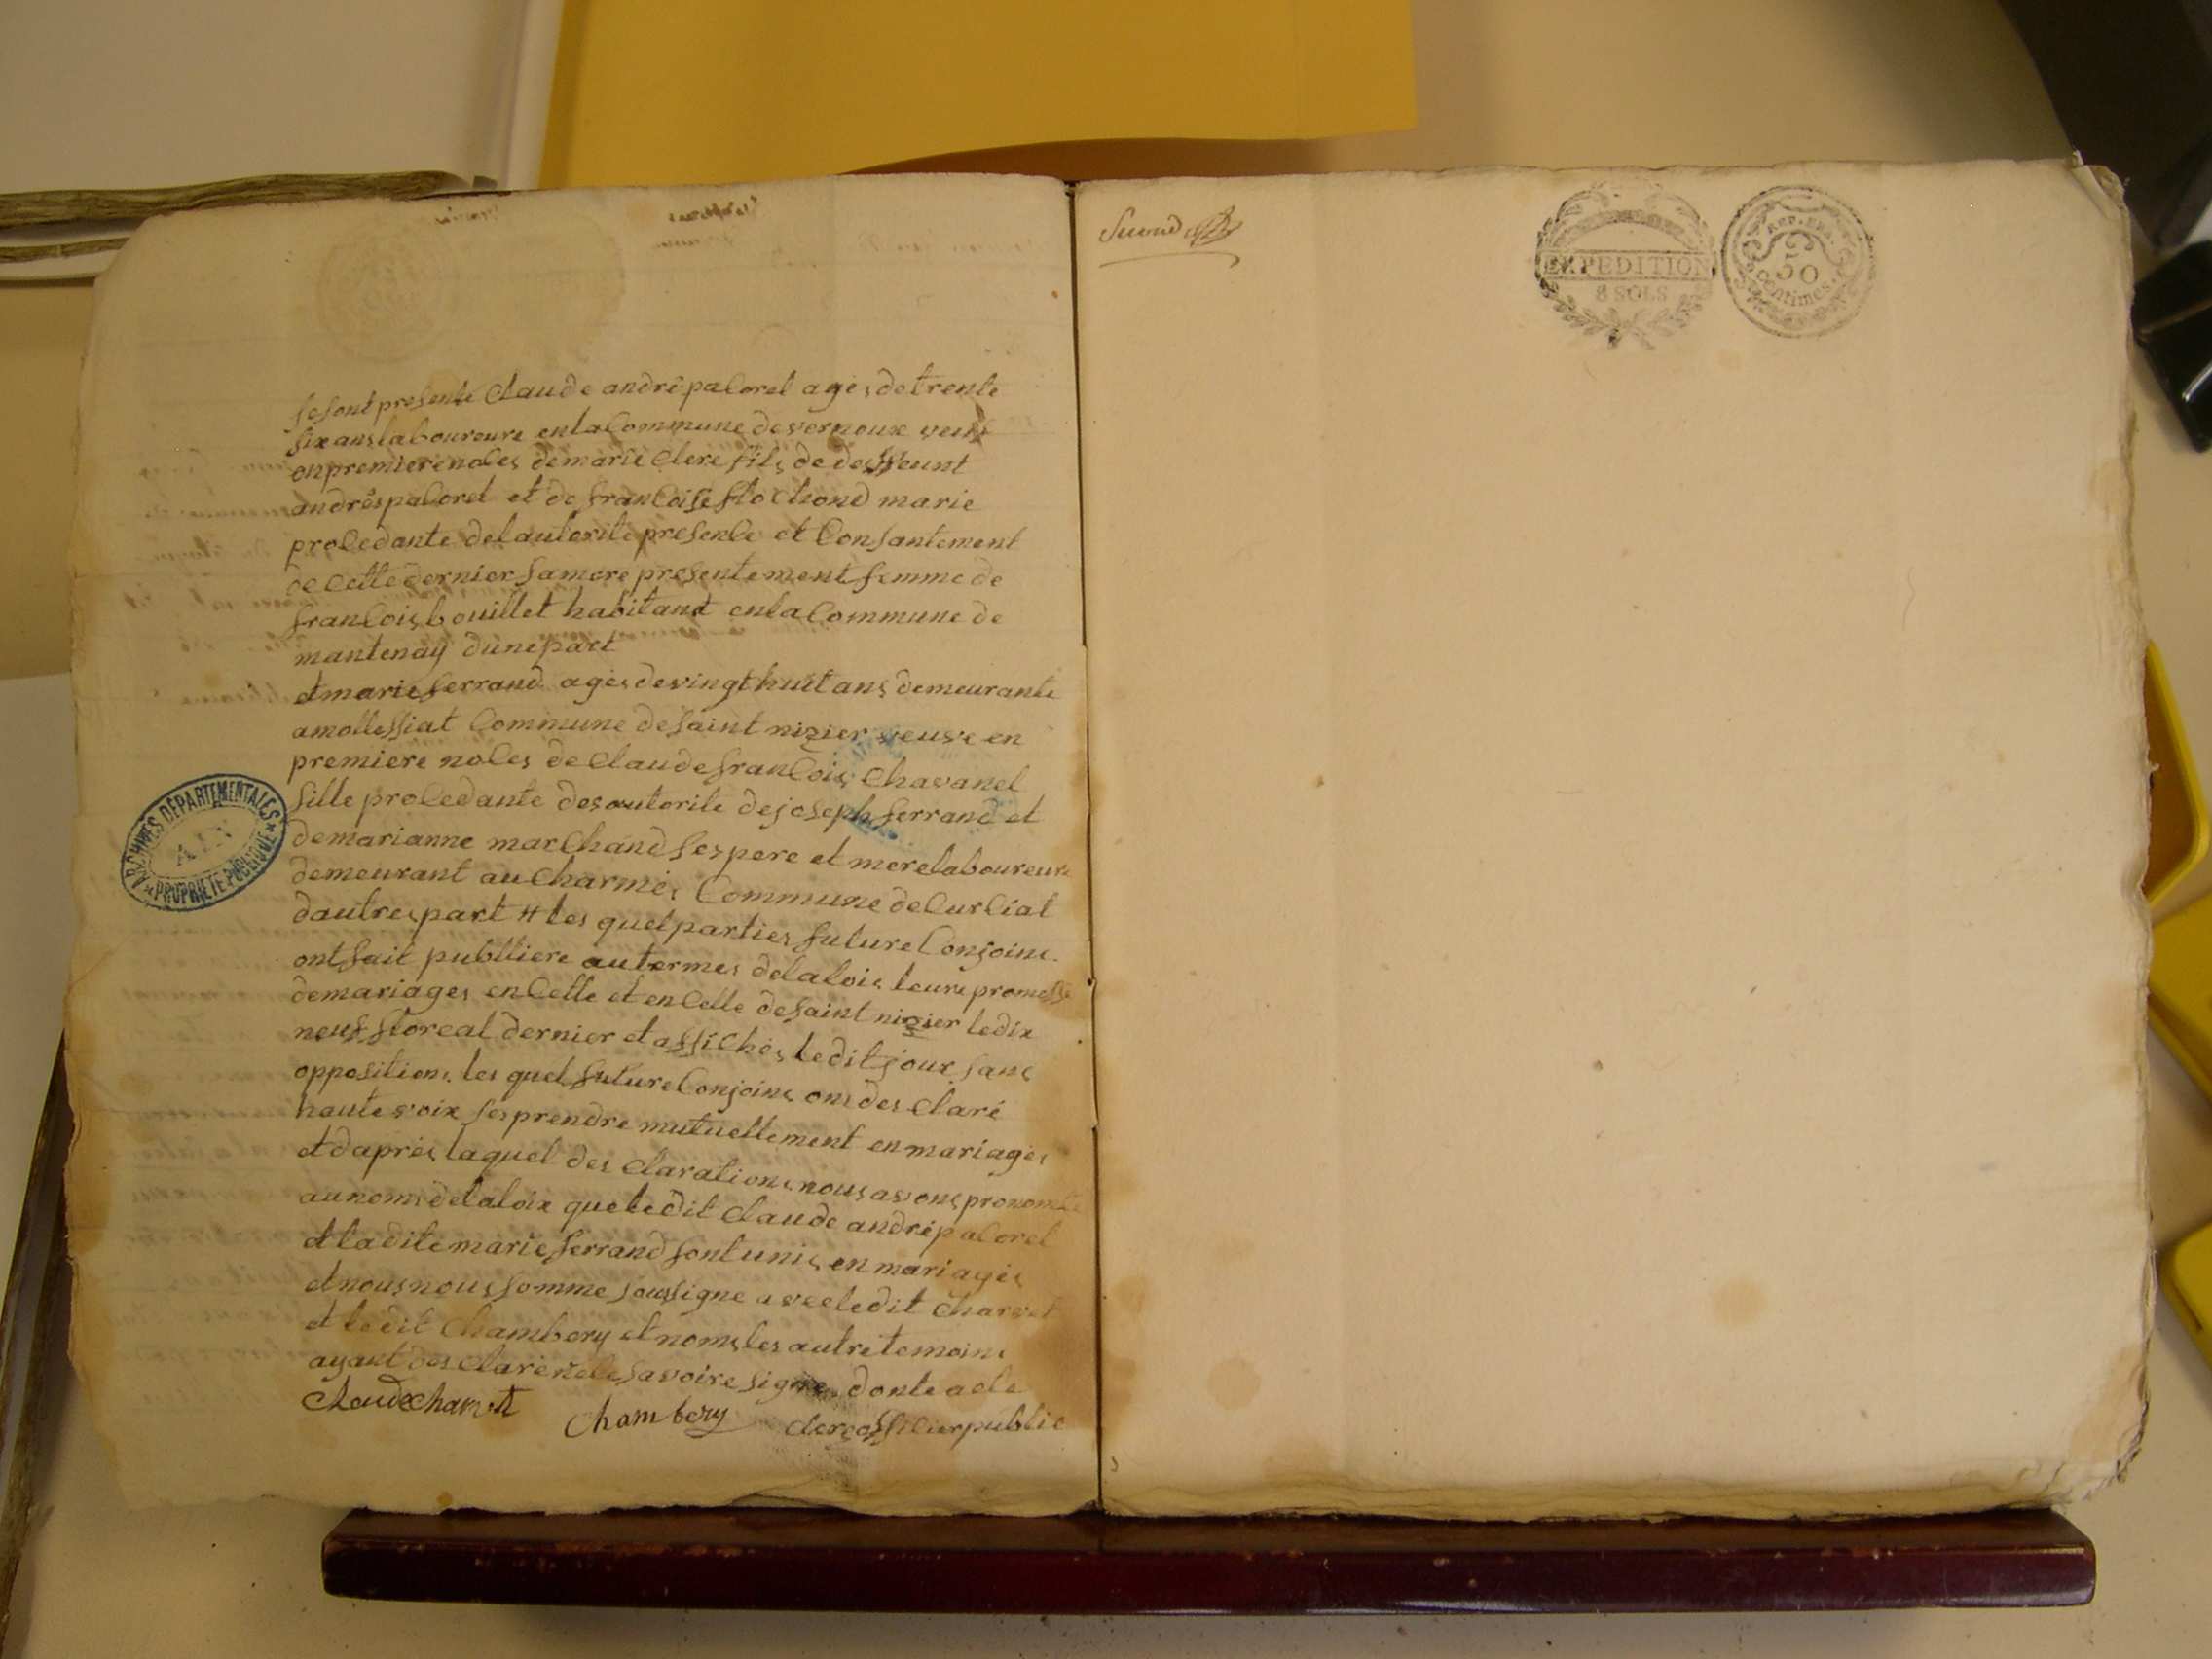 se sont presenté Claude andré paCoret agés de trente
six ans laboureure en la Commune de vernoux veuf
en premiere noCes de marie Clere fils de deffeunt
andrés paCoret et de franCoise flochond marie
proCedante de lautorité presenCe et Consantement
de Cette dernier sa mere presentement femme de
franCois bouillet habitant en la Commune de
mantenay dune part
et marie ferrand agés de vingt huit ans demeurante
a mollessiat Commune de saint nizier veuve en
premiere noCes de Claude franCois Chavanel
fille proCedante des autorite de joseph ferrand et
de marianne marChand ses pere et mere laboureure
demeurant au Charmés Commune de CurCiat
dautres part # les quel parties future Conjoins
ont fait publliere au termes de la lois leure promesse
de mariages en Cette et en Celle de saint nizier le dix
neuf floreal dernier et affiChés ledit jour sans
oppositions les quel future Conjoins ons des Claré
haute voix ses prendre mutuellement en mariages
et daprés laquel des Clarations nous avons prononCé
au noms de la loix que ledit Claude andré paCoret
et ladite marie ferrand sont unis en mariages
et nous nous somme soussigne avec ledit Charvet
et ledit Chambery et noms les autre temoins
ayant des Claré ne le savoire signe donte acte
Claude charvet Chambery clerc offiCier public
ARCHIVES DÉPARTEMENTALES
AIN
PROPRIÉTÉ PUBLIQUE
Second
EXPEDITION
8 SOLS
REP. FRA.
50
Centimes